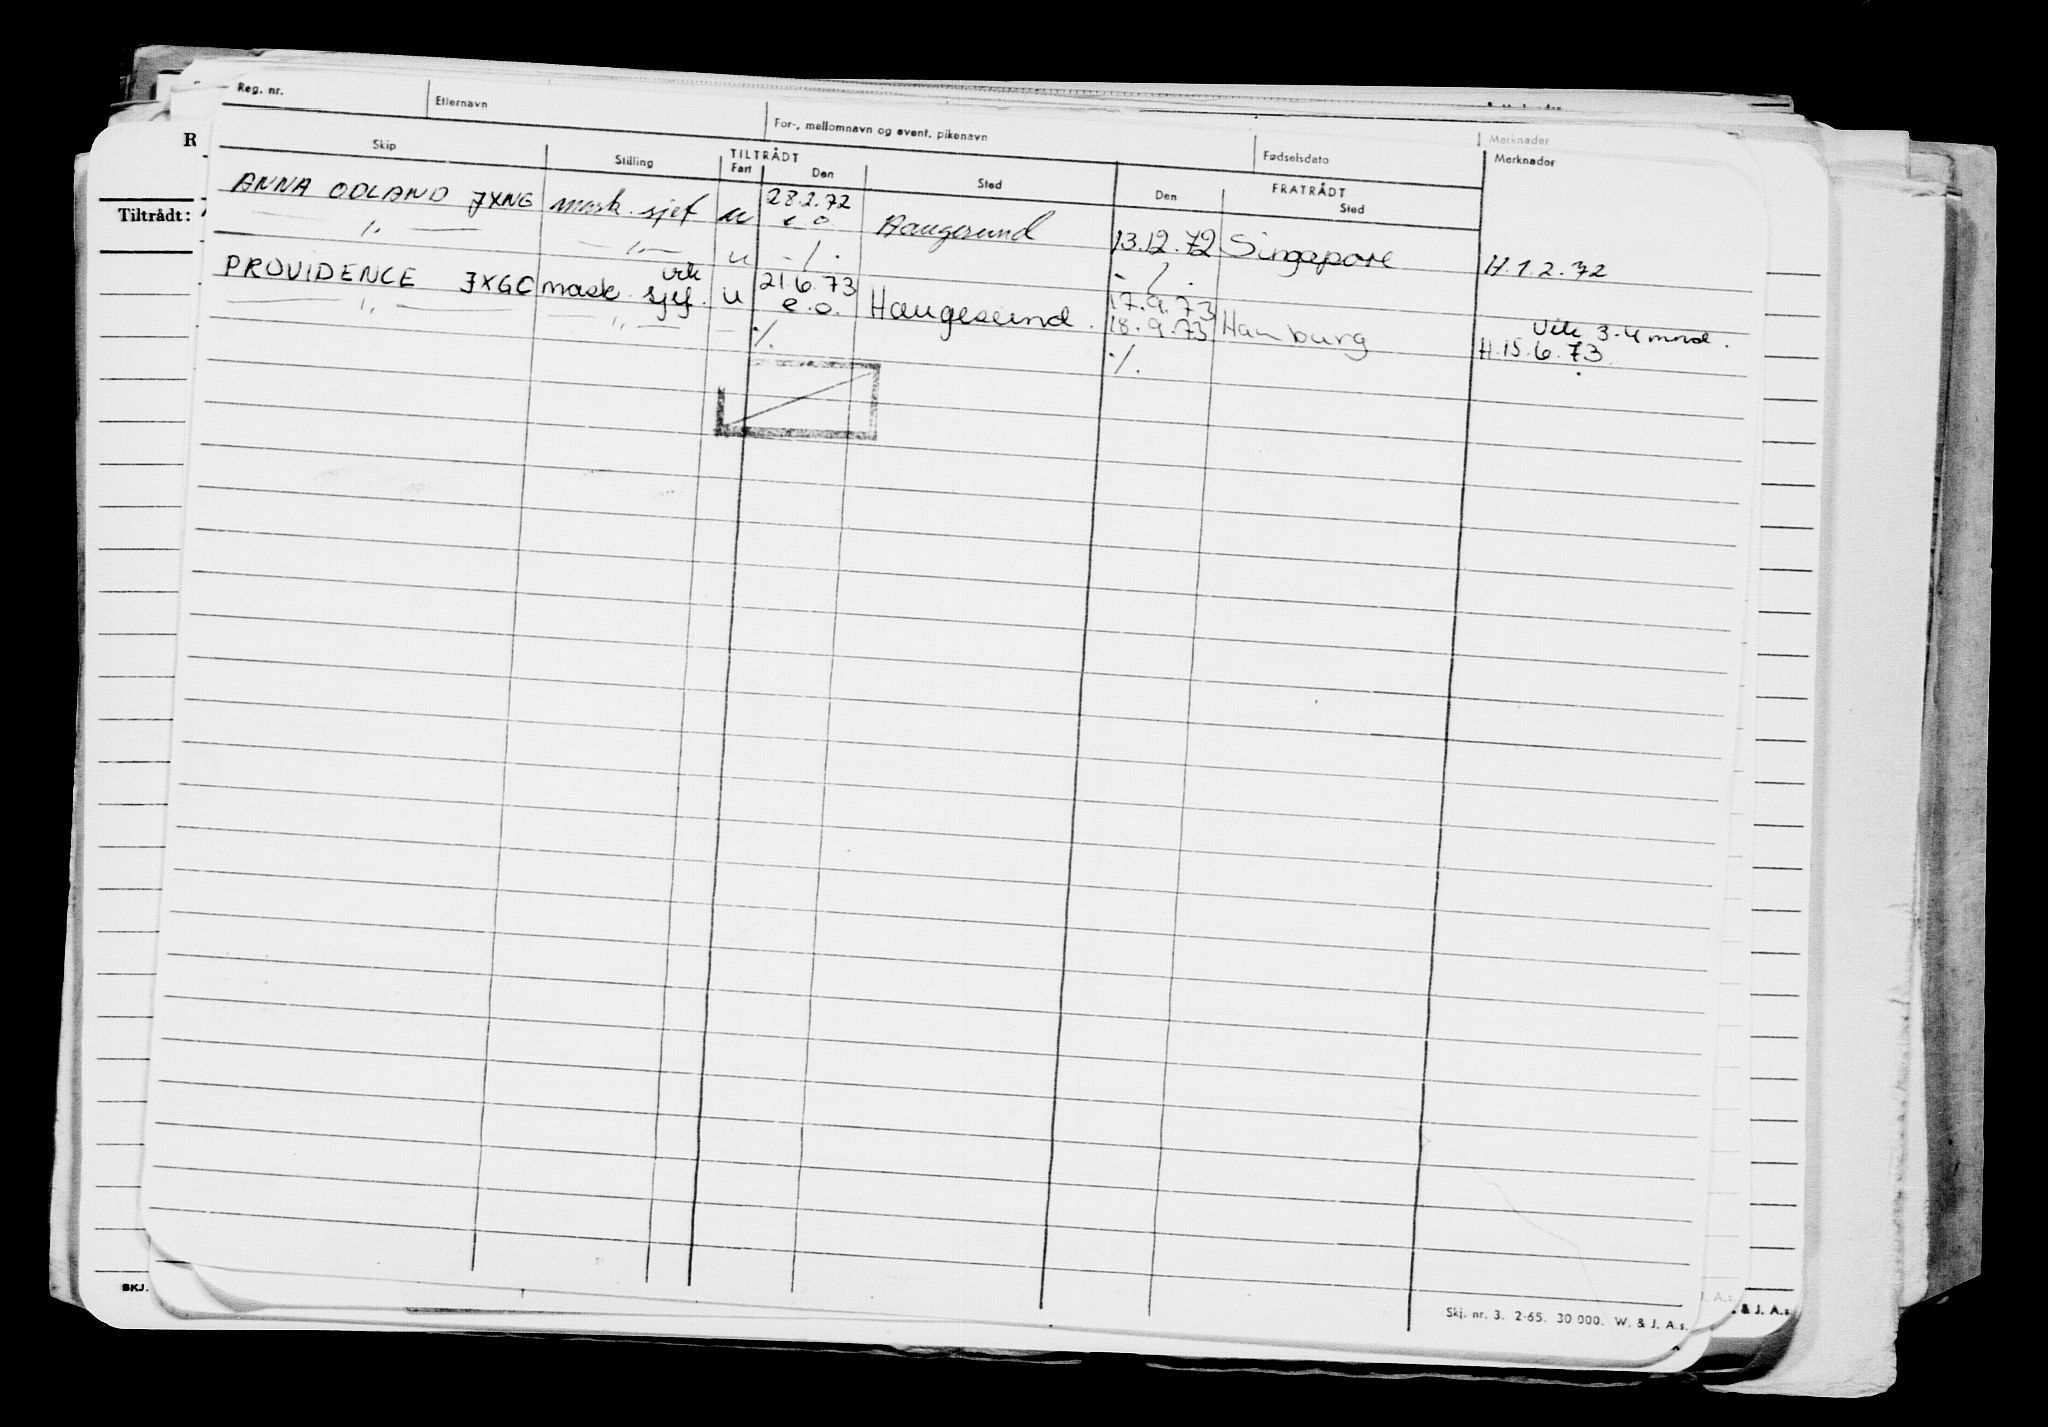 Reg. nr. Etternavn For-, mellomnavn og event. pikenavn Fødselsdato Merknader
Skip Stilling TILTRÅDT Fart Den Sted FRATRÅDT Den Sted Merknader
R
Tiltrådt:
ANNA ODLAND JXNG mask. sjef u 28.2.72 Haugesund 13.12.72 Singapore H.1.2.72
e.o.
—— " —— —— " —— u ./. ./.
PROVIDENCE JXGC mask. sjef. vik u 21.6.73 Haugesund. 17.9.73 Hamburg Vik 3-4 mnd.
e.o. 18.9.73 H.15.6.73.
—— " —— —— " —— — ./. ./.
Skj. nr. 3. 2-65. 30 000. W. & J. A.s.
SKJ.
J. A.s.
. & J. A.s.